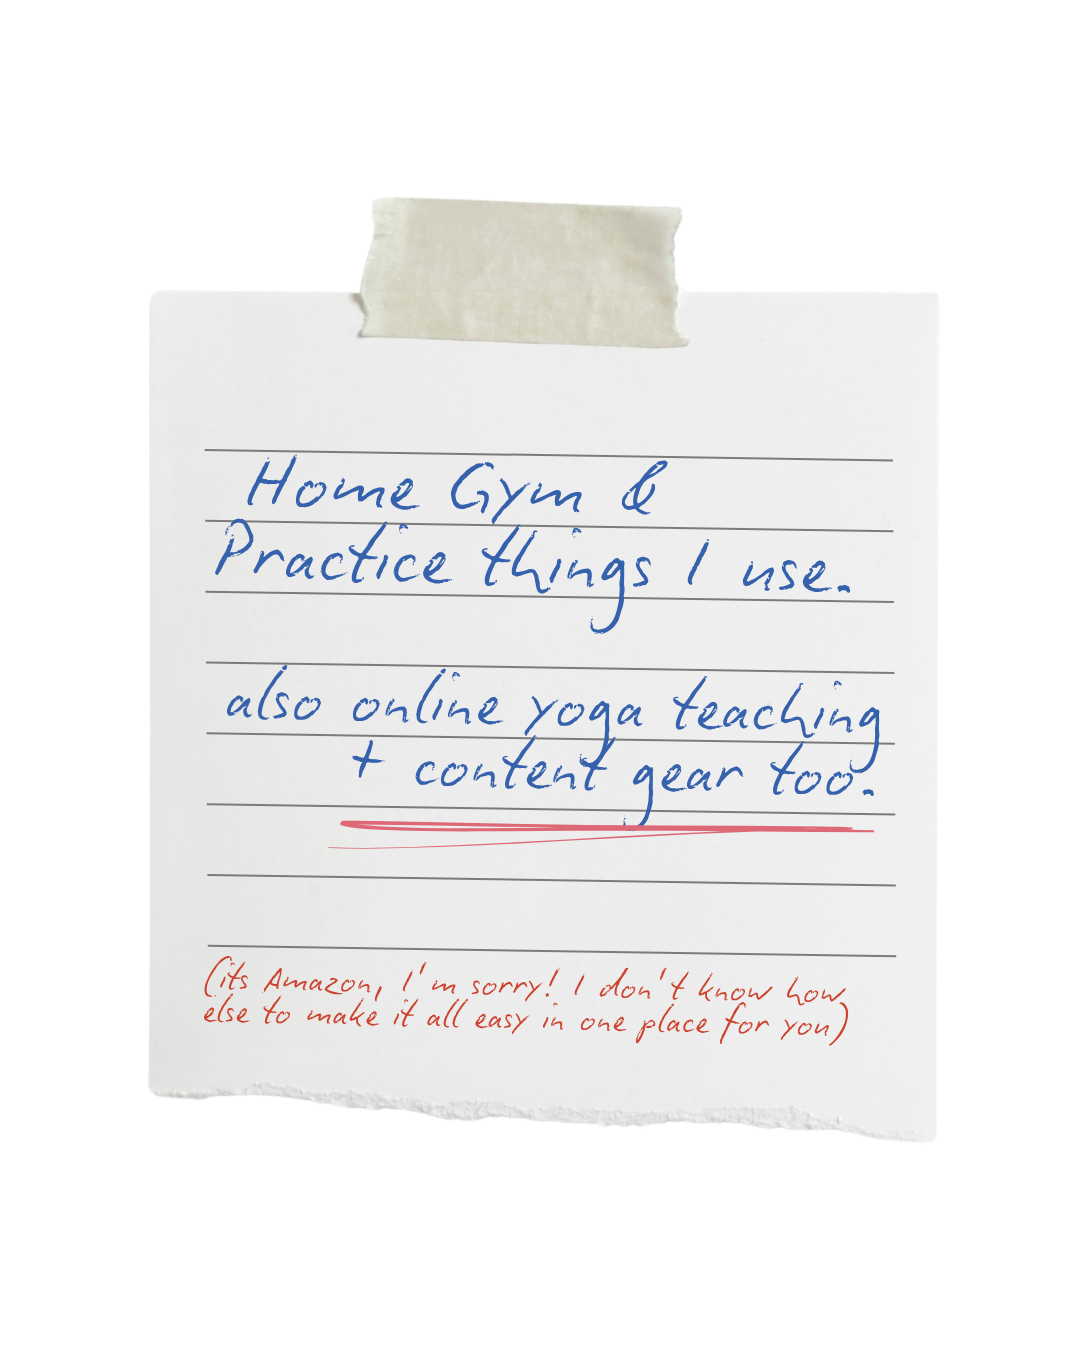 Home Gym &
Practice things I use.
also online yoga teaching
+ content gear too.
(its Amazon, I'm sorry! I don't know how
else to make it all easy in one place for you)